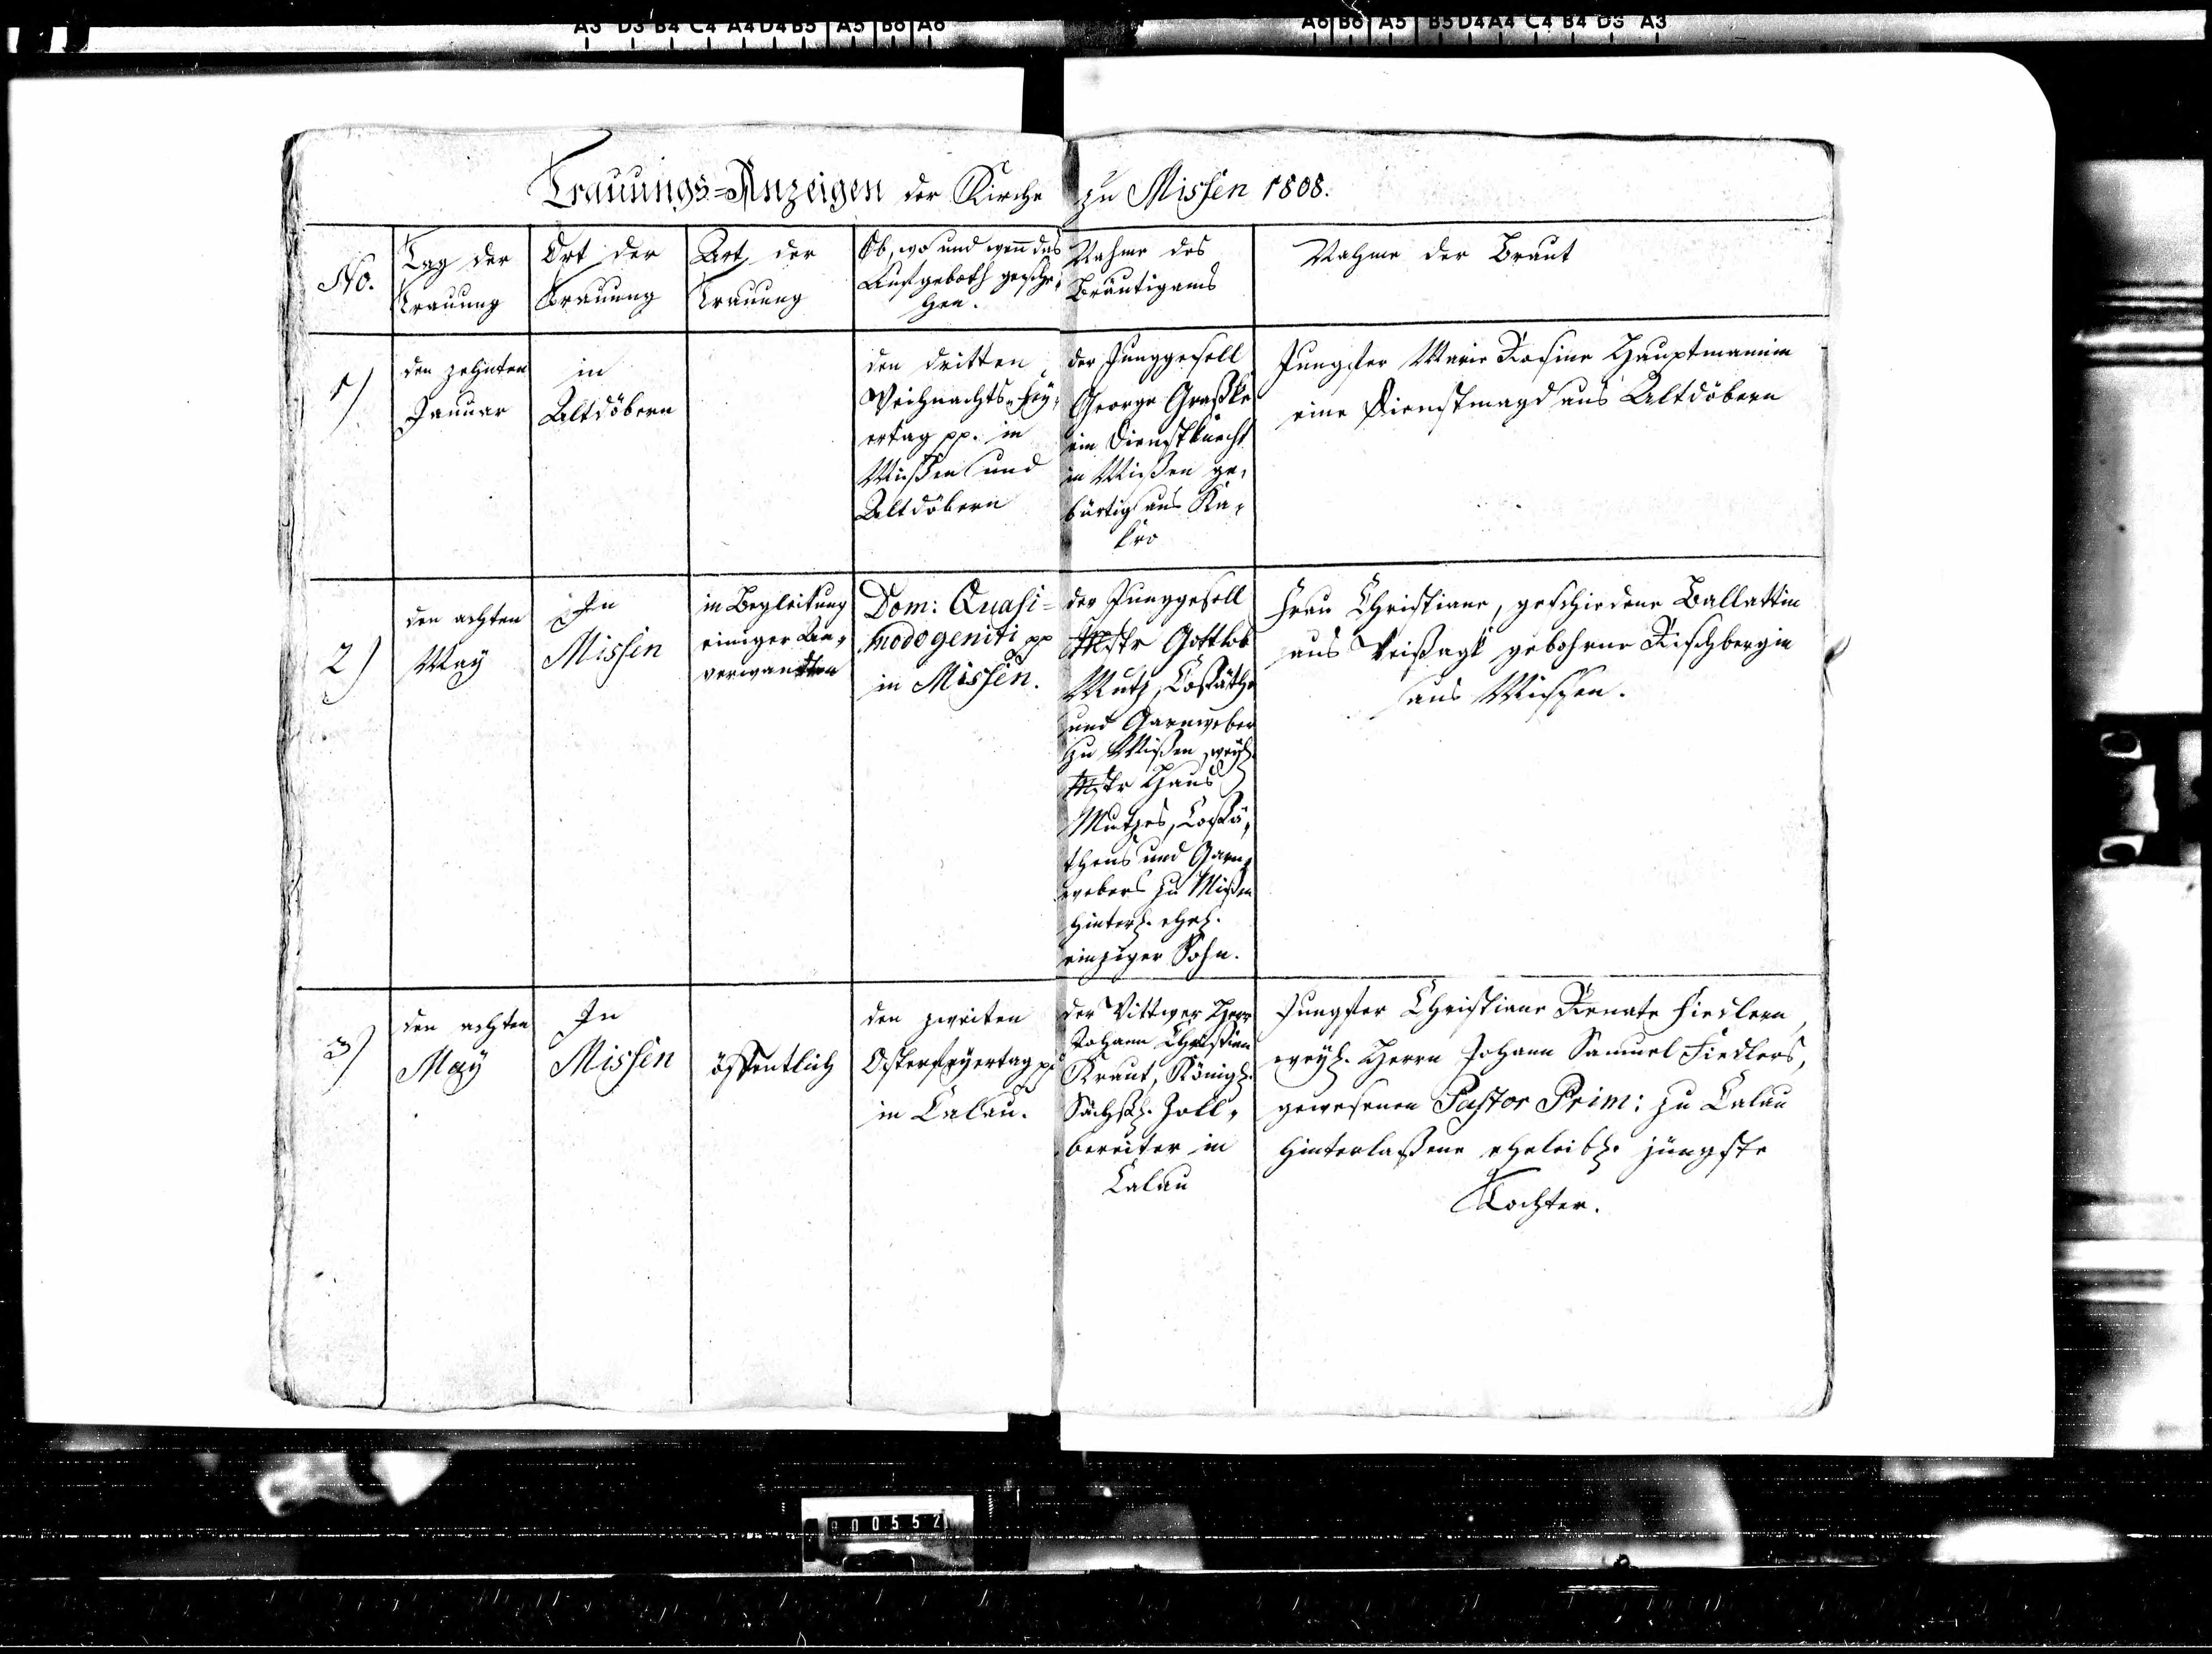 A3 D3 B4 C4 A4 D4 B5 A5 B6 A6
A6 B6 A5 B5 D4 A4 C4 B4 D3 A3
Trauungs=Anzeigen der Kirche zu Missen 1808.
No.
Tag der
Trauung
Ort der
Trauung
Art der
Trauung
Ob, wo und wenn das
Aufgeboth gesche-
hen.
Nahme des
Bräutigams
Nahme der Braut
1)
den zehnten
Januar
in
Altdöbern
den dritten
Weihnachts-Fey-
ertag pp. in
Mißen und
Altdöbern
der Junggesell
George Graßke
ein Dienstknecht
in Mißen ge-
bürtig aus Ka-
kro
Jungfer Marie Rosine Hauptmannin
eine Dienstmagd aus Altdöbern
2)
den achten
May
In
Missen
in Begleitung
einiger An-
verwandten
Dom: Quasi=
modogeniti pp
in Missen.
der Junggesell
Mstr Gottlob
Mutz, Coßäthe
und Garnweber
zu Mißen, weyl.
Mstr Hans
Mutzes, Coßä-
thens und Garn-
webers zu Mißen
hinterl. ehel.
einziger Sohn.
Frau Christiane, geschiedene Ballattin
aus gebohrne Kischbergin
aus Missen.
3)
den achten
May
In
Missen
öffentlich
den zweiten
Osterfeyertag pp
in Calau.
der Wittwer Herr
Johann Christian
Kraut, Königl.
Sächßl. Zoll-
bereiter in
Calau
Jungfer Christiane Renate Fiedlern,
weyl. Herrn Johann Samuel Fiedlers,
gewesenen Pastor Prim: zu Calau
hinterlaßene eheleibl. jüngste
Tochter.
000552